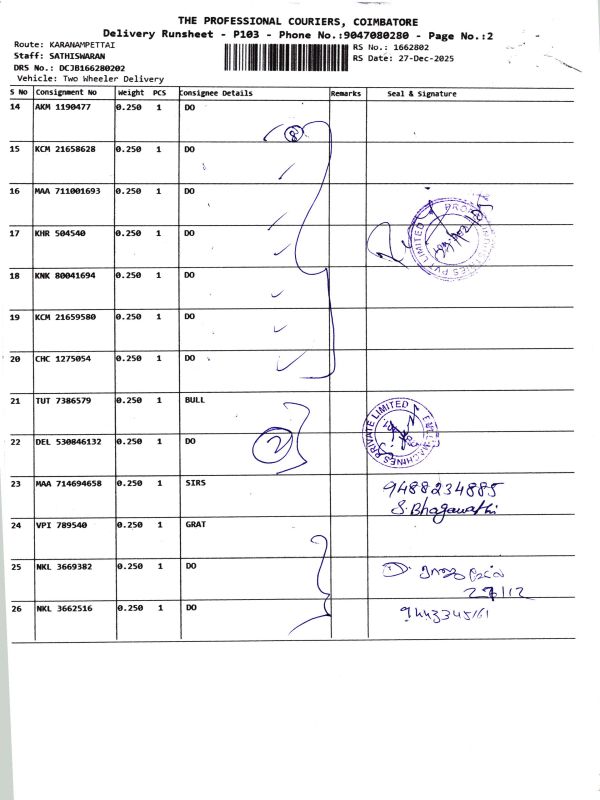 THE PROFESSIONAL COURIERS, COIMBATORE
Delivery Runsheet - P103 - Phone No.:9047080280 - Page No.:2
Route: KARANAMPETTAI
RS No.: 1662802
Staff: SATHISWARAN
RS Date: 27-Dec-2025
DRS No.: DCJB166280202
Vehicle: Two Wheeler Delivery
S No Consignment No Weight PCS Consignee Details Remarks Seal & Signature
14 AKM 1190477 0.250 1 DO
8
15 KCM 21658628 0.250 1 DO
16 MAA 711001693 0.250 1 DO
17 KHR 504540 0.250 1 DO
PVT LIMITED
18 KNK 80041694 0.250 1 DO
19 KCM 21659580 0.250 1 DO
20 CHC 1275054 0.250 1 DO
21 TUT 7386579 0.250 1 BULL
MACHINES PRIVATE LIMITED
22 DEL 530846132 0.250 1 DO
2
23 MAA 714694658 0.250 1 SIRS
9488234885
S. Bhagawathi
24 VPI 789540 0.250 1 GRAT
25 NKL 3669382 0.250 1 DO
27/12
26 NKL 3662516 0.250 1 DO
9443345161